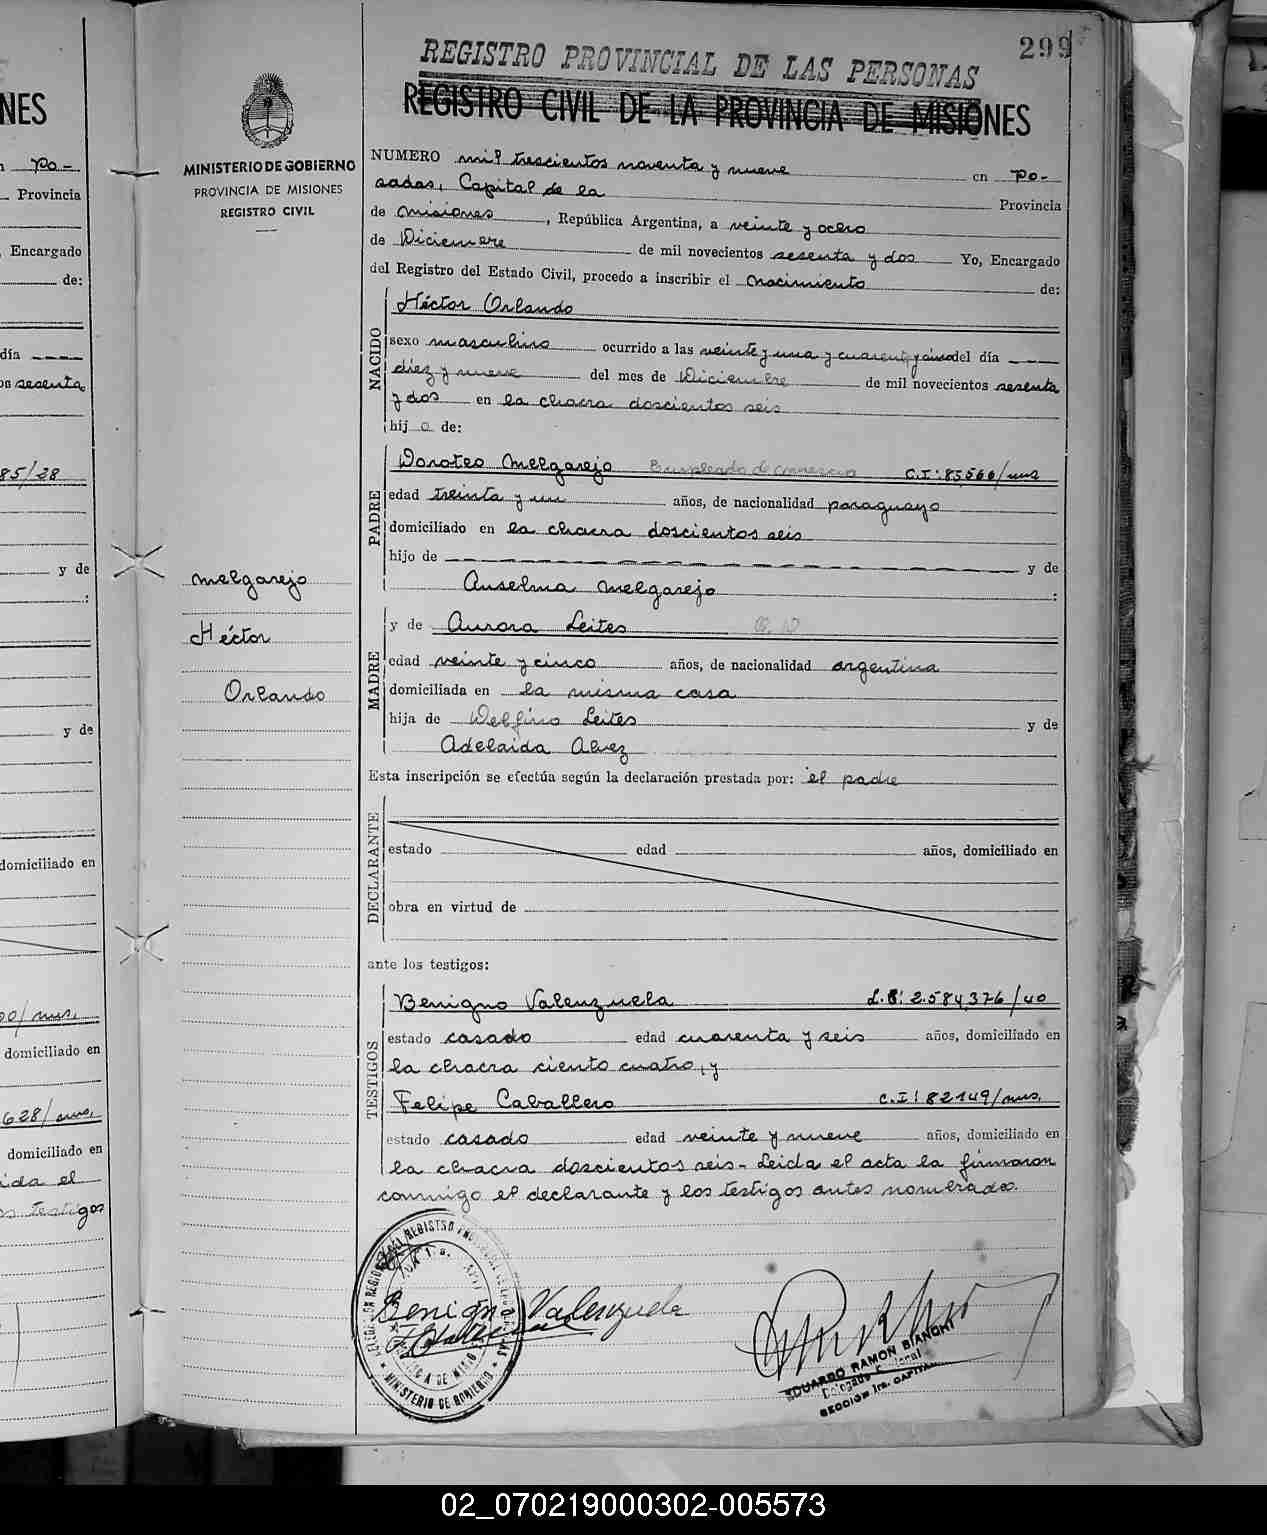 299
REGISTRO PROVINCIAL DE LAS PERSONAS
REGISTRO CIVIL DE LA PROVINCIA DE MISIONES
MINISTERIO DE GOBIERNO
PROVINCIA DE MISIONES
REGISTRO CIVIL
NUMERO mil trescientos noventa y nueve en Po-
sadas, Capital de la Provincia
de Misiones, República Argentina, a veinte y ocho
de Diciembre de mil novecientos sesenta y dos Yo, Encargado
del Registro del Estado Civil, procedo a inscribir el nacimiento de:
NACIDO
Héctor Orlando
sexo masculino ocurrido a las veinte y una y cuarenta y cinco del día
diez y nueve del mes de Diciembre de mil novecientos sesenta
y dos en la chacra doscientos seis
hijo de:
PADRE
Doroteo Melgarejo Empleado de comercio C.I: 85,566/mns
edad treinta y un años, de nacionalidad paraguayo
domiciliado en la chacra doscientos seis
hijo de y de
Anselma Melgarejo :
melgarejo
Héctor
Orlando
MADRE
y de Aurora Leites
edad veinte y cinco años, de nacionalidad argentina
domiciliada en la misma casa
hija de Delfino Leites y de
Adelaida Alvez
Esta inscripción se efectúa según la declaración prestada por: el padre
DECLARANTE
estado edad años, domiciliado en
obra en virtud de
ante los testigos:
TESTIGOS
Benigno Valenzuela L.E: 2.584,376/40
estado casado edad cuarenta y seis años, domiciliado en
la chacra ciento cuatro, y
Felipe Caballero C.I: 82149/mns.
estado casado edad veinte y nueve años, domiciliado en
la chacra doscientos seis- Leida el acta la firmaron
conmigo el declarante y los testigos antes nombrados.
Benigno Valenzuela
MINISTERIO DE GOBIERNO
EDUARDO RAMON BIANCHI
Delegado
SECCION 1ra. CAPITAL
NES
Po-
Provincia
, Encargado
de:
día
os sesenta
85/28
y de
:
y de
domiciliado en
00/mns.
domiciliado en
628/mns.
domiciliado en
ida el
os testigos
02_070219000302-005573